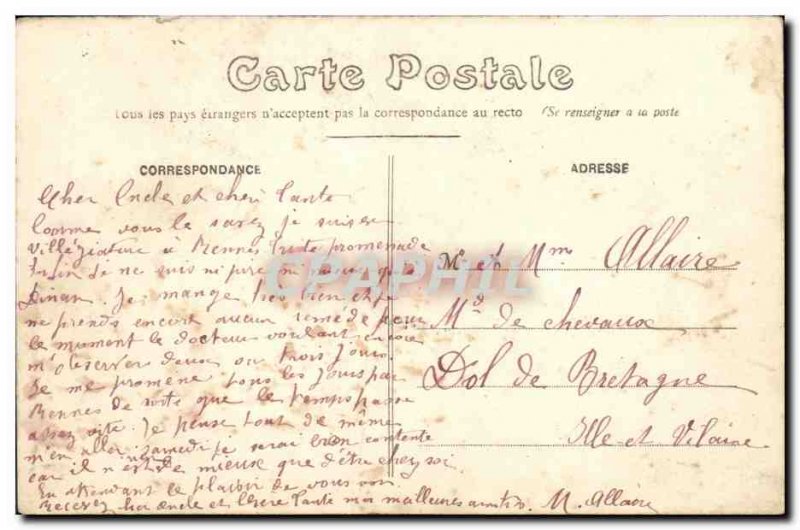 Carte Postale
Tous les pays étrangers n'acceptent pas la correspondance au recto (Se renseigner à la poste
CORRESPONDANCE
Cher Oncle et chère Tante
Comme vous le savez je suis en
villégiature à Rennes triste promenade
enfin je ne suis ni pire ni mieux qu'à
Dinan. Je mange très bien et je
ne prends encore aucun remède pour
le moment le docteur voulant encore
m'observer deux ou trois jours
Je me promène tous les jours par
Rennes de sorte que le temps passe
assez vite. Je pense tout de même
m'en aller samedi je serai bien contente
car il n'est de mieux que d'être chez soi
En attendant le plaisir de vous voir
Recevez cher oncle et chère Tante mes meilleures amitiés. M. Allaire
ADRESSE
Mr et Mme Allaire
Md de chevaux
Dol de Bretagne
Ille et Vilaine
CPAPHIL